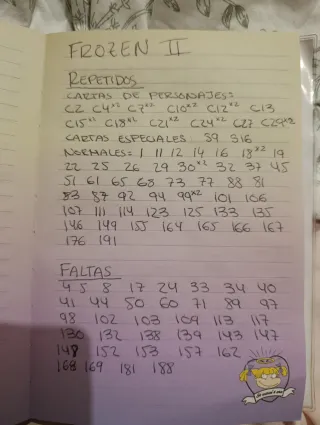 FROZEN II
REPETIDOS
CARTAS DE PERSONAJES:
C2 C4x2 C7x2 C10x2 C12x2 C13
C15x2 C18x2 C21x2 C24x2 C27 C29x2
CARTAS ESPECIALES S9 S16
NORMALES= 1 11 12 14 16 18x2 19
22 25 26 29 30x2 32 37 45
51 61 65 68 73 77 88 81
83 87 92 94 99x2 101 106
107 111 114 123 125 133 135
146 149 155 164 165 166 167
176 191
FALTAS
4 5 8 17 24 33 34 40
41 44 50 60 71 89 97
98 102 103 109 113 117
130 132 138 139 143 147
148 152 153 157 162
168 169 181 188